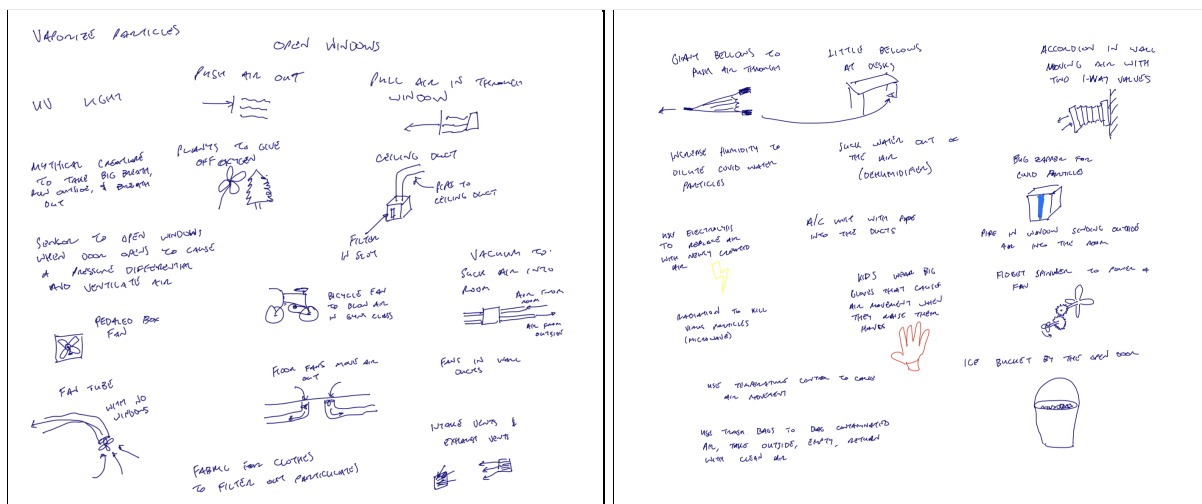 VAPORIZE PARTICLES
OPEN WINDOWS
UV LIGHT
PUSH AIR OUT
PULL AIR IN THROUGH
WINDOW
MYTHICAL CREATURE
TO TAKE BIG BREATH,
RUN OUTSIDE, & BREATH
OUT
PLANTS TO GIVE
OFF OXYGEN
CEILING DUCT
PIPE TO
CEILING DUCT
FILTER
IN SLOT
SENSOR TO OPEN WINDOWS
WHEN DOOR OPENS TO CAUSE
A PRESSURE DIFFERENTIAL
AND VENTILATE AIR
BICYCLE FAN
TO BLOW AIR
IN GYM CLASS
VACUUM TO
SUCK AIR INTO
ROOM
AIR FROM
ROOM
AIR FROM
OUTSIDE
PEDALED BOX
FAN
FLOOR FANS MOVE AIR
OUT
FANS IN WALL
DUCTS
FAN TUBE
WITH NO
WINDOWS
INTAKE VENTS &
EXHAUST VENTS
FABRIC FOR CLOTHES
TO FILTER OUT PARTICULATES
GIANT BELLOWS TO
PUSH AIR THROUGH
LITTLE BELLOWS
AT DESKS
ACCORDION IN WALL
MOVING AIR WITH
TWO 1-WAY VALVES
INCREASE HUMIDITY TO
DILUTE COVID WATER
PARTICLES
SUCK WATER OUT OF
THE AIR
(DEHUMIDIFIER)
BUG ZAPPER FOR
COVID PARTICLES
USE ELECTROLYSIS
TO REPLACE AIR
WITH NEWLY CREATED
AIR
A/C UNIT WITH PIPE
INTO THE DUCTS
PIPE IN WINDOW SENDING OUTSIDE
AIR INTO THE ROOM
RADIATION TO KILL
VIRUS PARTICLES
(MICROWAVE)
KIDS WEAR BIG
GLOVES THAT CAUSE
AIR MOVEMENT WHEN
THEY RAISE THEIR
HANDS
FIDGET SPINNER TO POWER A
FAN
USE TEMPERATURE CONTROL TO CAUSE
AIR MOVEMENT
ICE BUCKET BY THE OPEN DOOR
USE TRASH BAGS TO BAG CONTAMINATED
AIR, TAKE OUTSIDE, EMPTY, RETURN
WITH CLEAN AIR